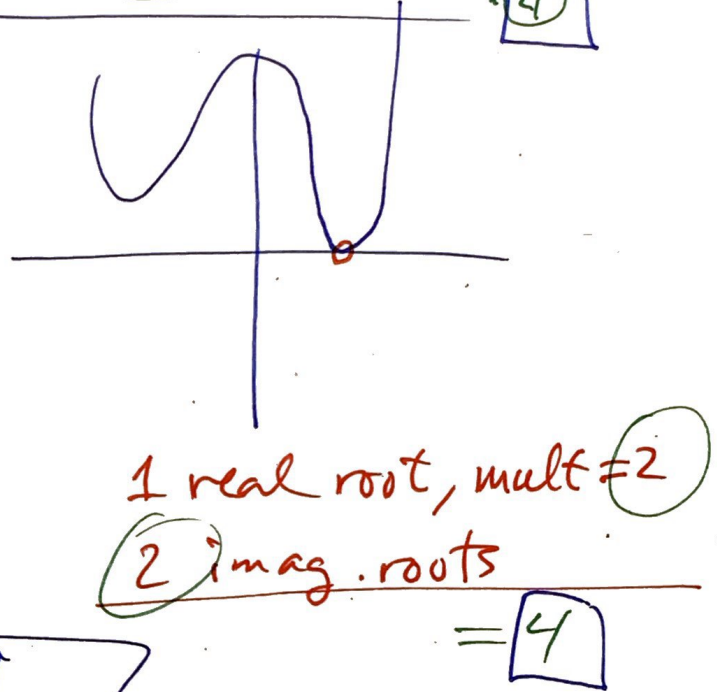 4
1 real root, mult=2
2 imag. roots
= 4